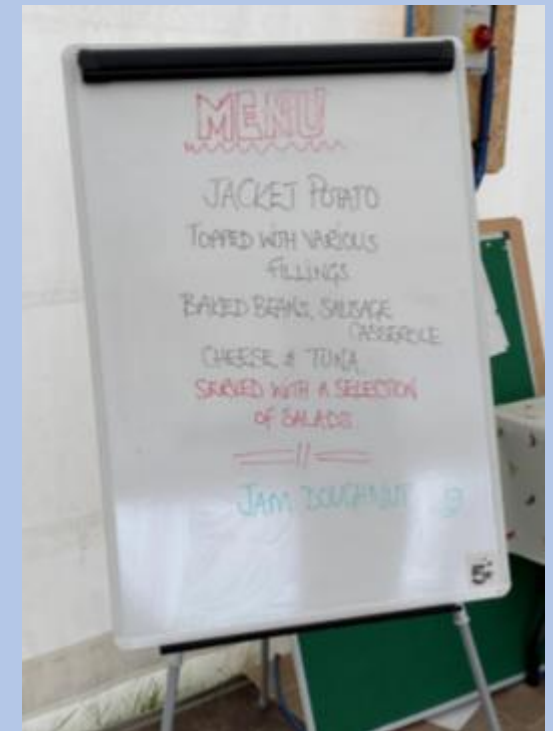 MENU
JACKET POTATO
TOPPED WITH VARIOUS
FILLINGS
BAKED BEANS, SAUSAGE
CASSEROLE
CHEESE & TUNA
SERVED WITH A SELECTION
OF SALADS
JAM DOUGHNUT